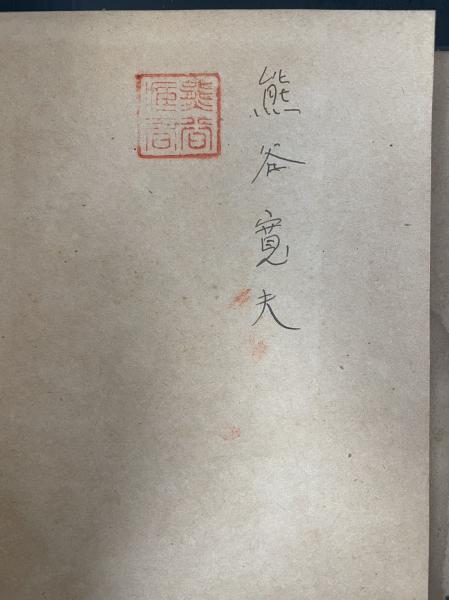 熊谷寛夫